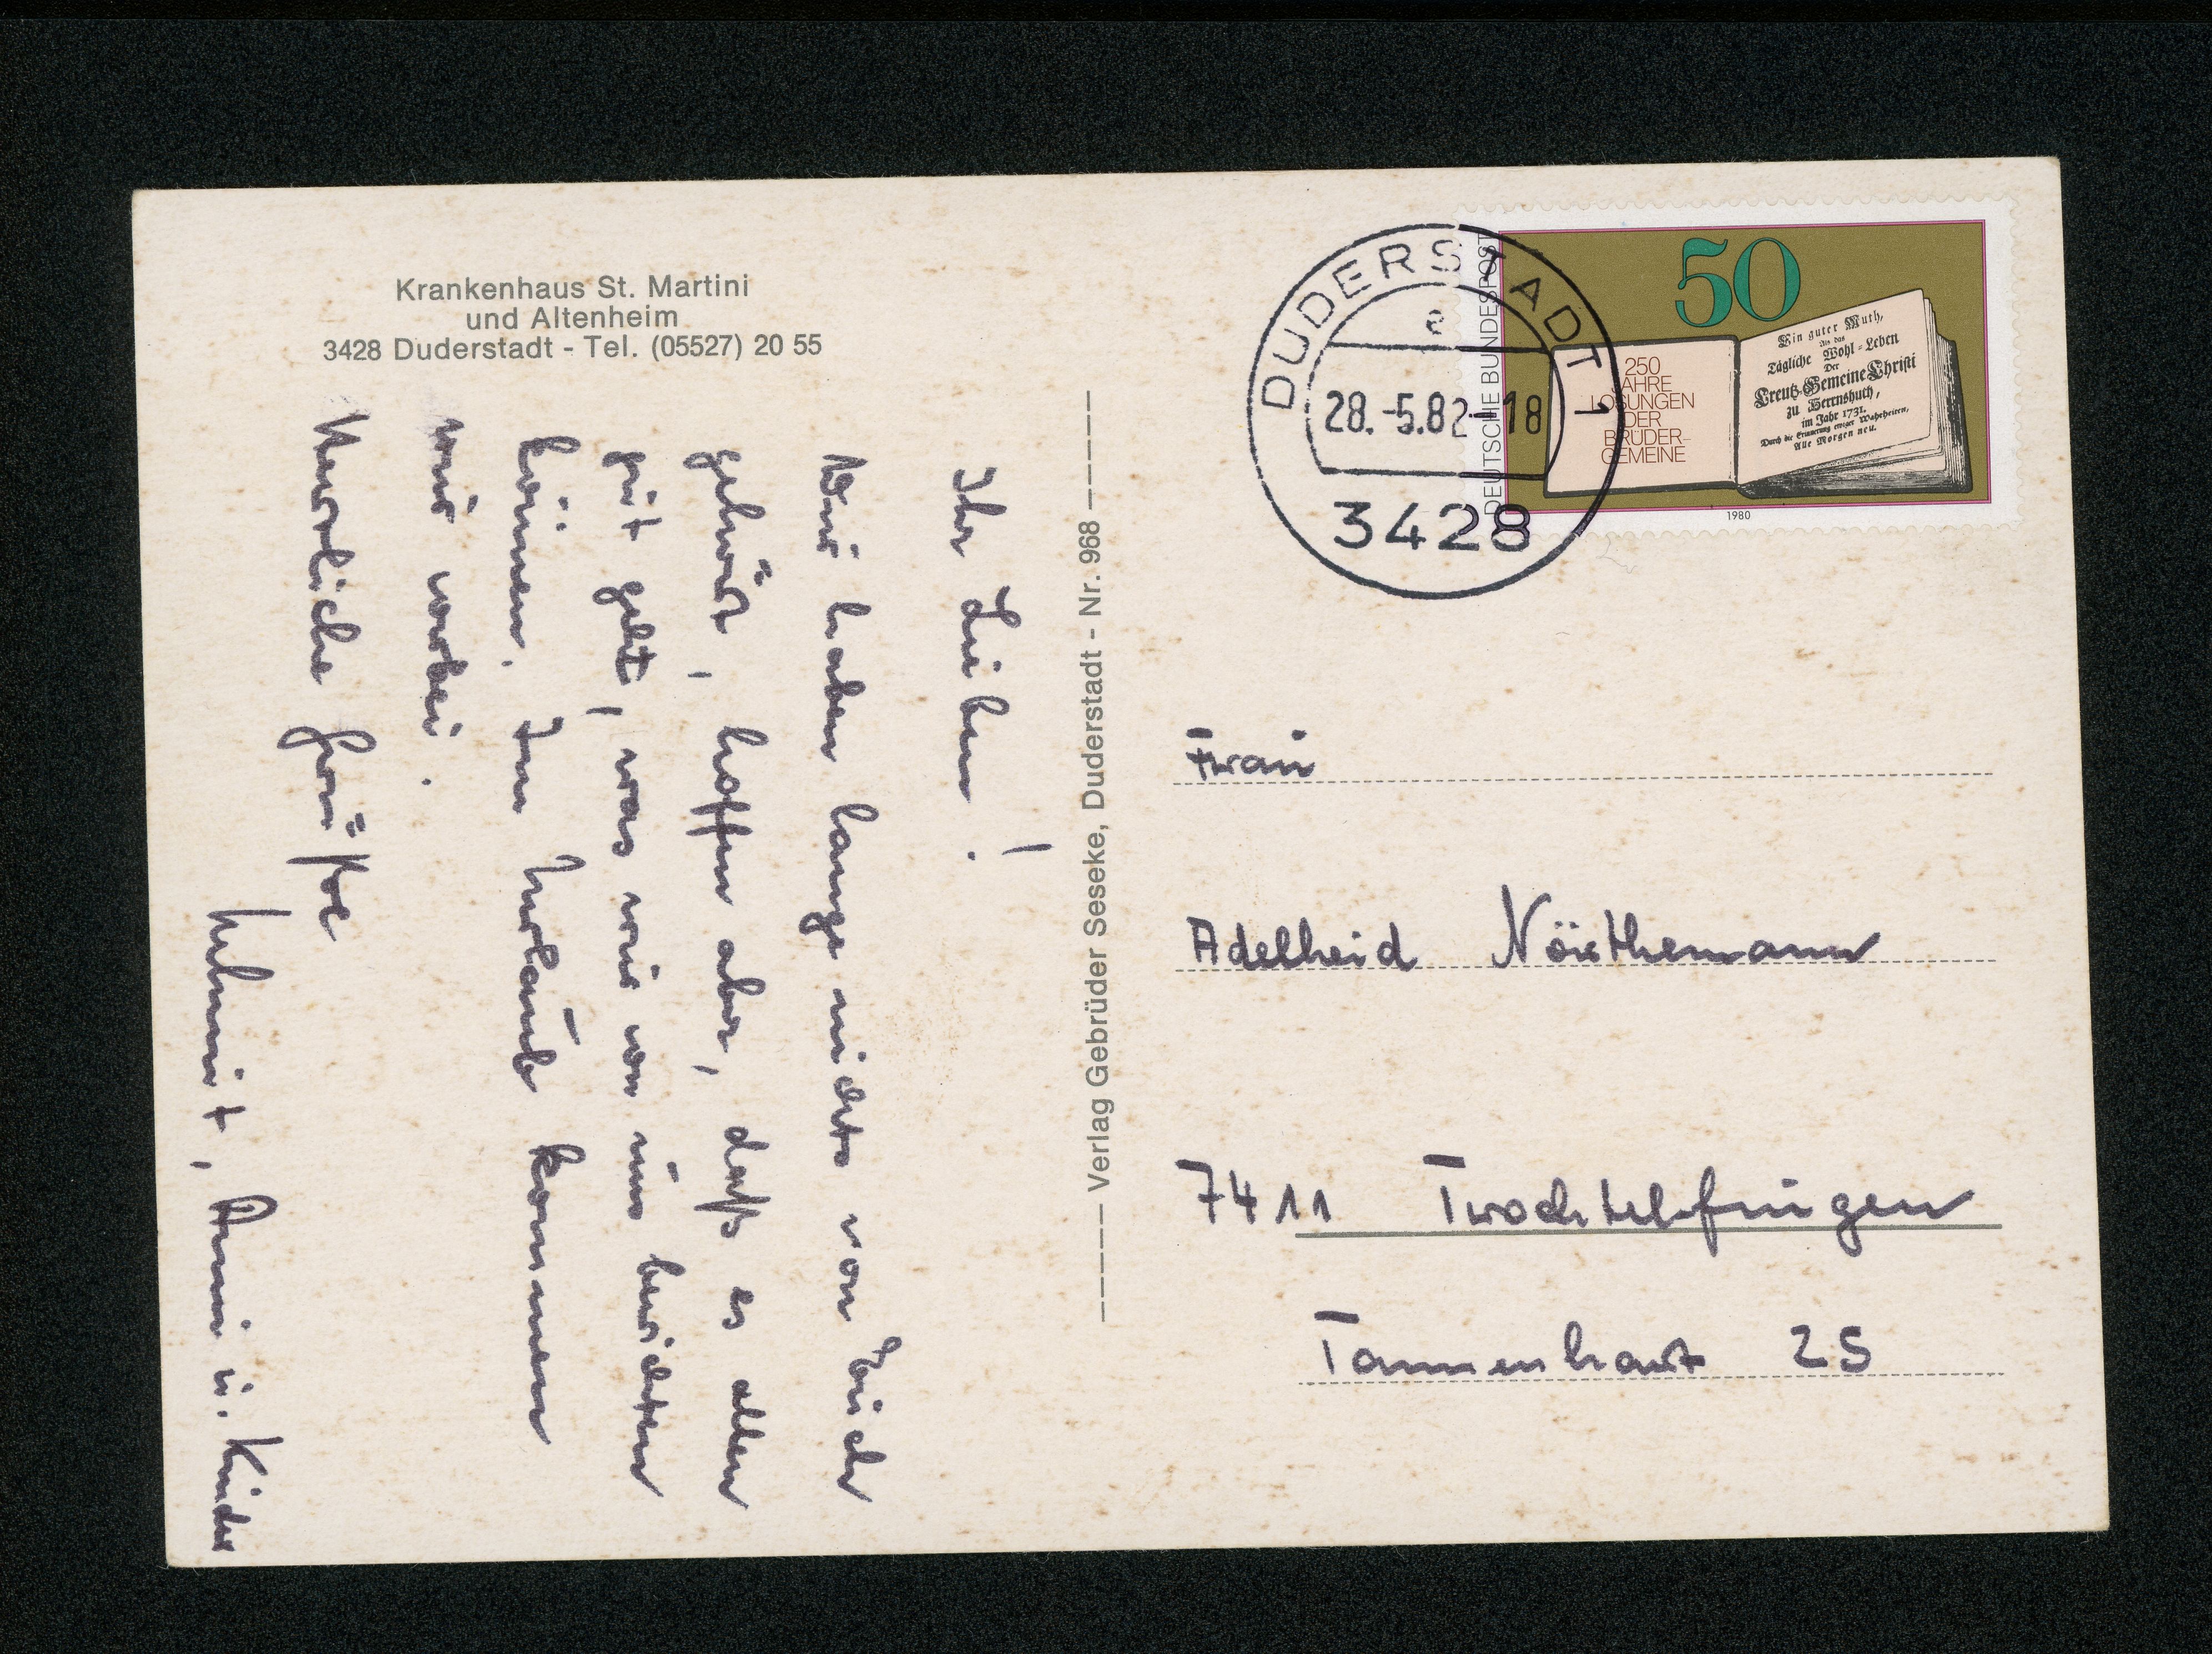 Krankenhaus St. Martini
und Altenheim
3428 Duderstadt - Tel. (05527) 20 55
Ihr Lieben!
Wir haben lange nichts von Euch
gehört, hoffen aber, daß es allen
gut geht, was wir von uns berichten
können. Im Urlaub kommen
wir vorbei.
Herzliche Grüße
Helmut, Anni u. Kinder
Verlag Gebrüder Seseke, Duderstadt - Nr. 968
DUDERSTADT 1
a
28.-5.82-18
3428
DEUTSCHE BUNDESPOST
50
250
JAHRE
LOSUNGEN
DER
BRÜDER-
GEMEINE
Ein guter Muth,
Als das
Tägliche Wohl-Leben
Der
Creutz-Gemeine Christi
zu Herrnhuth,
im Jahr 1731.
Durch die Erinnerung ewiger Wahrheiten,
Alle Morgen neu.
1980
Frau
Adelheid Nörthemann
7411 Trochtelfingen
Tannenhart 25